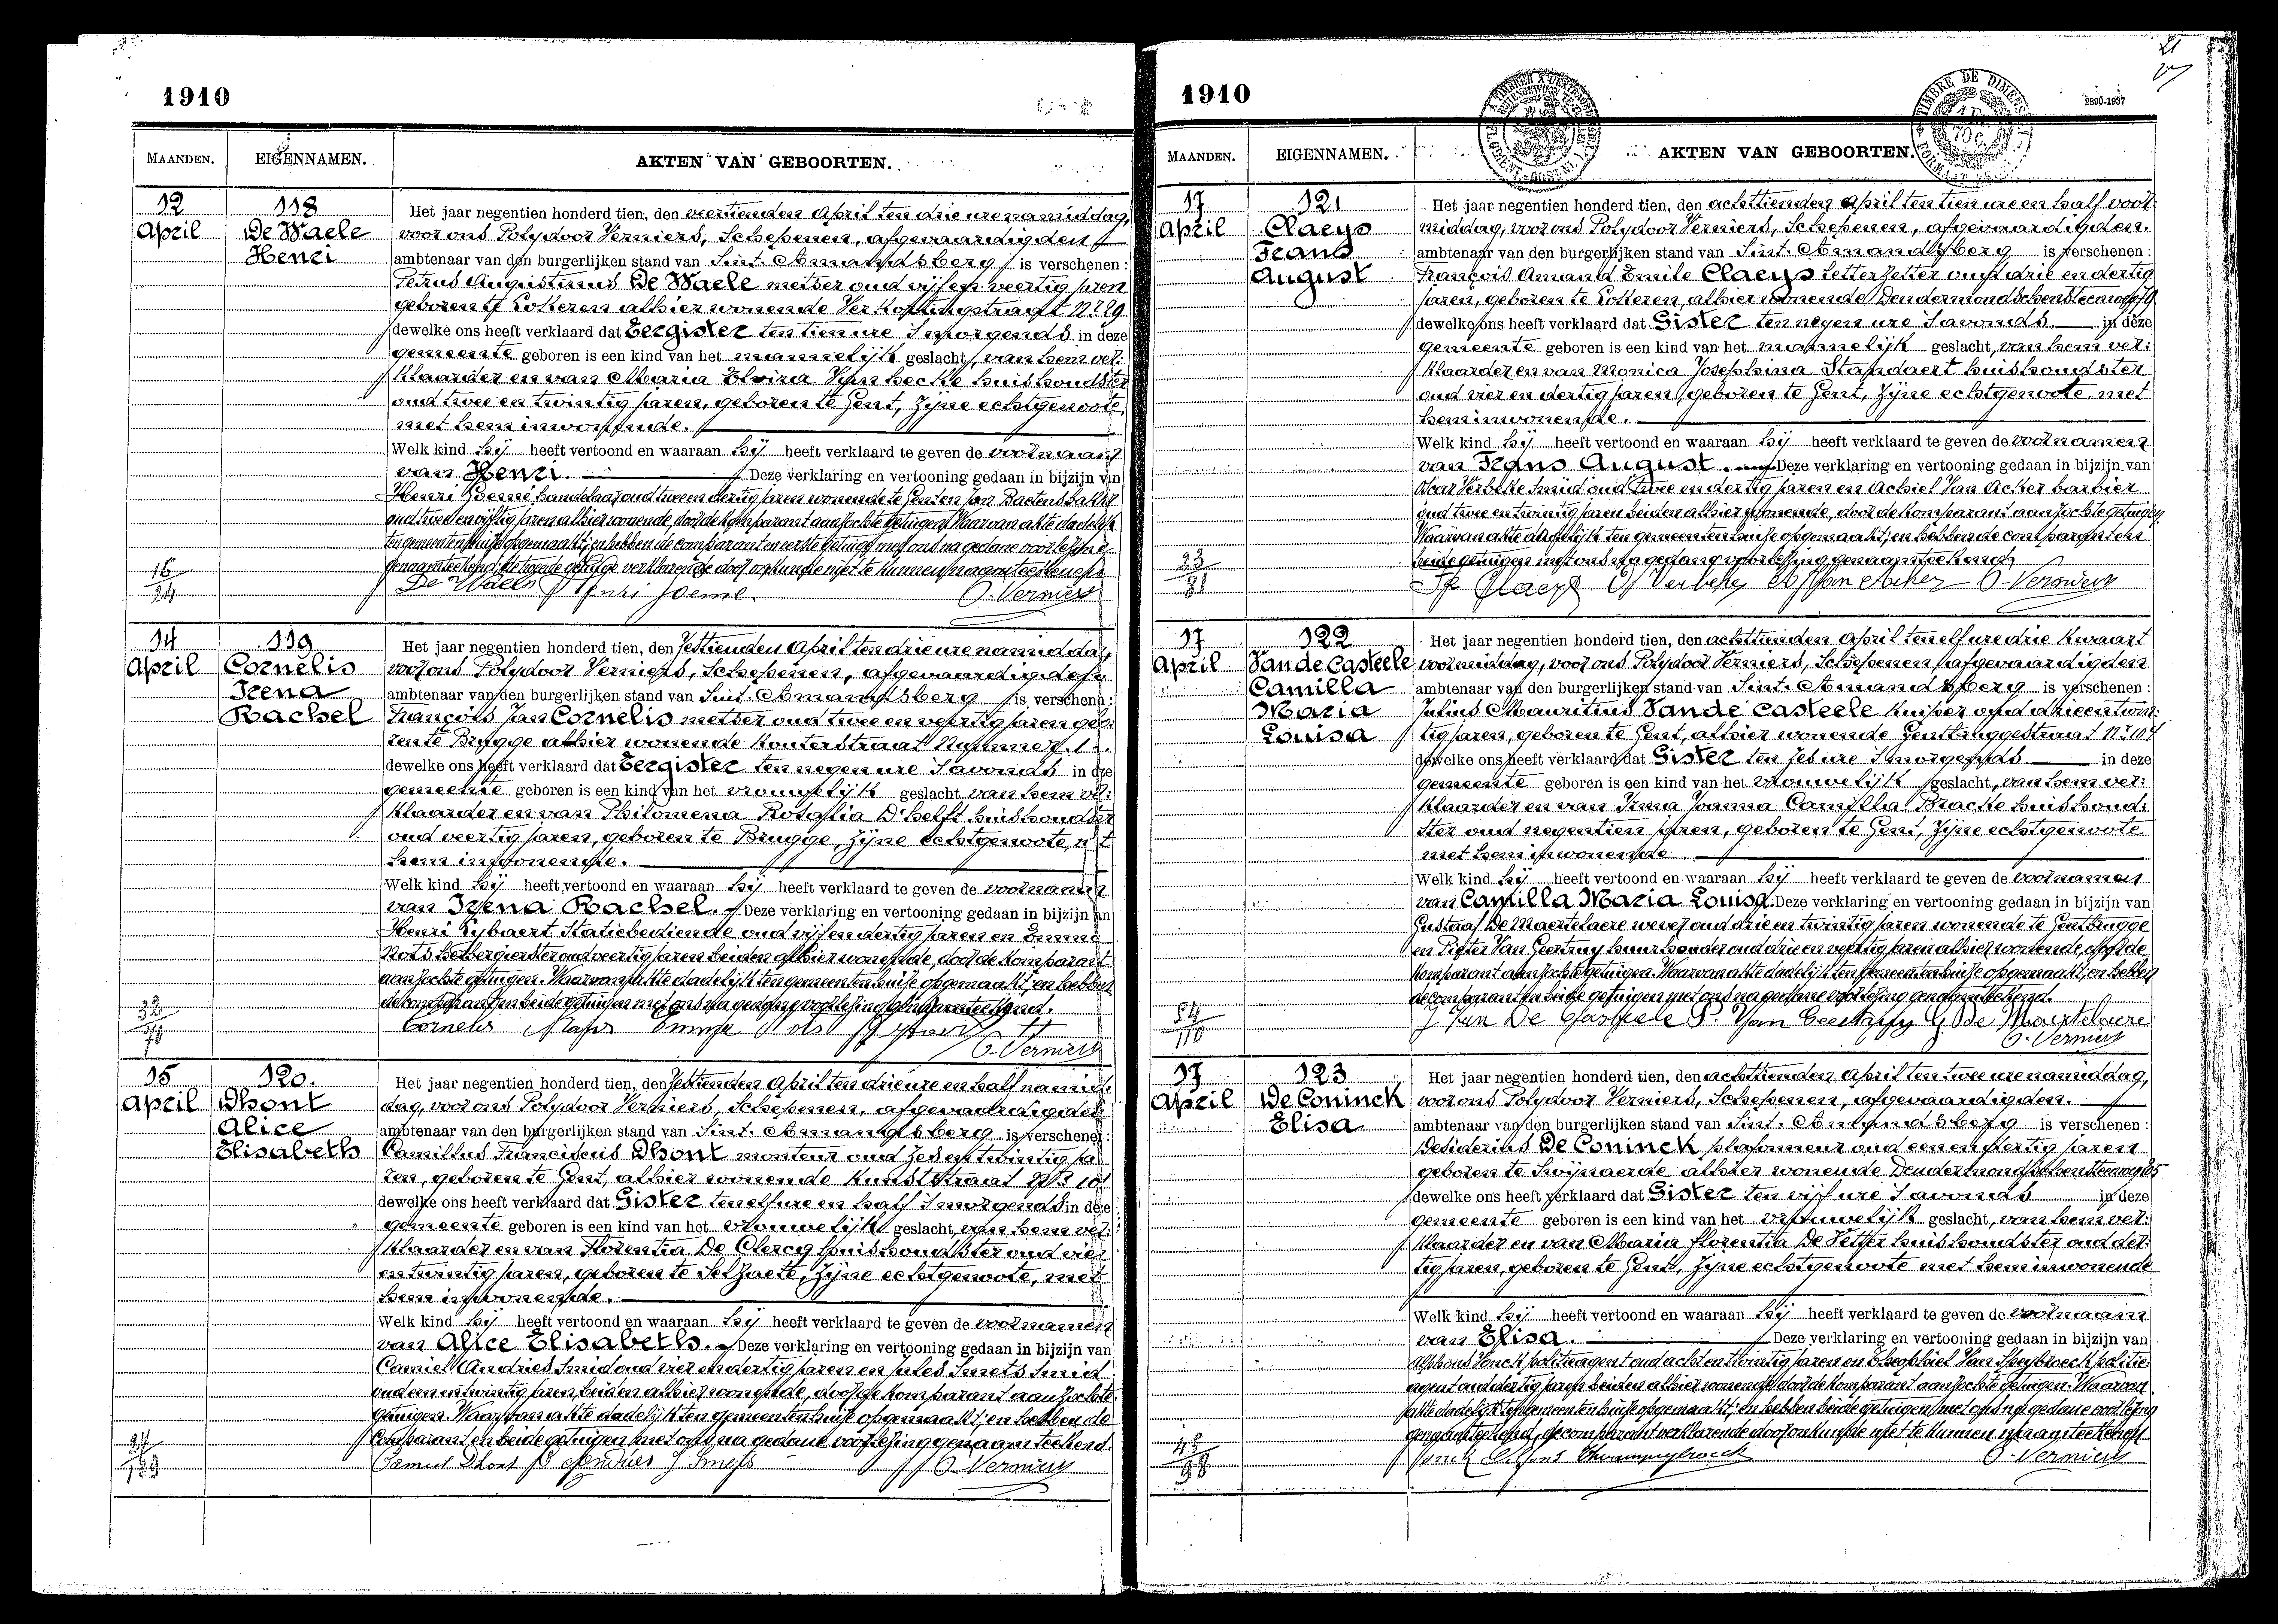 1910
MAANDEN. EIGENNAMEN. AKTEN VAN GEBOORTEN.
12 118 Het jaar negentien honderd tien, den veertienden April ten drie ure namiddag,
April De Waele voor ons Polydoor Verniers, Schepenen, afgevaardigden
Henri ambtenaar van den burgerlijken stand van Sint-Amandsberg is verschenen:
Petrus Augustinus De Waele metser oud vijf en veertig jaren
geboren te Lotteren alhier wonende Verkortingstraat N° 29
dewelke ons heeft verklaard dat Eergister ten tien ure 's morgends in deze
gemeente geboren is een kind van het mannelijk geslacht, van hem ver:
klaarder en van Maria Elvira Van hecke huishoudster
oud twee en twintig jaren, geboren te Gent, zijne echtgenoote
met hem inwonende.
Welk kind hij heeft vertoond en waaraan hij heeft verklaard te geven de voornaam
van Henri. Deze verklaring en vertooning gedaan in bijzijn van
Henri Goemé handelaar oud twee en dertig jaren wonende te Gent en Jan Baetens bakker
oud twee en vijftig jaren alhier wonende, door de komparant aanzochte getuigen. Waarvan akte dadelijk
ten gemeentenhuise opgemaakt; en hebben de comparant en eerste getuige met ons na gedane voorlezing
genaamteekend; de tweede getuige verklarende door onkunde niet te kunnen naamteekenen.
16
94
De Waele Henri Goemé. P. Verniers
14 119 Het jaar negentien honderd tien, den zestienden April ten drie ure namiddag,
April Cornelis voor ons Polydoor Verniers, Schepenen, afgevaardigden
Irena ambtenaar van den burgerlijken stand van Sint-Amandsberg is verschenen:
Rachel François Jan Cornelis metser oud twee en veertig jaren gebo:
ren te Brugge alhier wonende Kouterstraat Nummer 1
dewelke ons heeft verklaard dat Eergister ten negen ure 's avonds in deze
gemeente geboren is een kind van het vrouwelijk geslacht van hem ver:
klaarder en van Philomena Rosalia D'helft huishoudster
oud veertig jaren, geboren te Brugge, zijne echtgenoote, met
hem inwonende.
Welk kind hij heeft vertoond en waaraan hij heeft verklaard te geven de voornamen
van Irena Rachel. Deze verklaring en vertooning gedaan in bijzijn van
Henri Rybaert Statiebediende oud vijf en dertig jaren en Emma
Nots herbergierster oud veertig jaren beiden alhier wonende, door de komparant
aanzochte getuigen. Waarvan akte dadelijk ten gemeentenhuise opgemaakt; en hebben
de comparant en beide getuigen met ons na gedane voorlezing genaamteekend.
Cornelis
P. Verniers
15 120. Het jaar negentien honderd tien, den zestienden April ten drie ure en half namid:
April Dhont dag, voor ons Polydoor Verniers, Schepenen, afgevaardigden
Alice ambtenaar van den burgerlijken stand van Sint-Amandsberg is verschenen:
Elisabeth Camillus Franciscus Dhont monteur oud zes en twintig ja
ren, geboren te Gent, alhier wonende Kunststraat N° 101
dewelke ons heeft verklaard dat Gister ten elf ure en half 's morgends in deze
gemeente geboren is een kind van het vrouwelijk geslacht, van hem ver:
klaarder en van Florentia De Clercq huishoudster oud vier
en twintig jaren, geboren te Selzaete, zijne echtgenoote, met
hem inwonende.
Welk kind hij heeft vertoond en waaraan hij heeft verklaard te geven de voornamen
van Alice Elisabeth. Deze verklaring en vertooning gedaan in bijzijn van
Camiel Andries Smid oud vier en dertig jaren en Jules Smets Smid
oud een en twintig jaren, beiden alhier wonende, door de komparant aanzochte
getuigen. Waarvan akte dadelijk ten gemeentenhuise opgemaakt; en hebben de
comparant en beide getuigen met ons na gedane voorlezing genaamteekend.
Camiel Dhont C Andries J Smets P. Verniers
1910
2890-1937
21
MAANDEN. EIGENNAMEN. AKTEN VAN GEBOORTEN.
17 121 Het jaar negentien honderd tien, den achttienden April ten tien ure en half voor
April Claeys middag, voor ons Polydoor Verniers, Schepenen, afgevaardigden
Frans ambtenaar van den burgerlijken stand van Sint-Amandsberg is verschenen:
August François Amand Emile Claeys letterzetter oud drie en dertig
jaren, geboren te Lotteren, alhier wonende Dendermondschensteenweg
dewelke ons heeft verklaard dat Gister ten negen ure 's avonds in deze
gemeente geboren is een kind van het mannelijk geslacht, van hem ver:
klaarder en van Monica Josephina Standaert huishoudster
oud vier en dertig jaren, geboren te Gent, zijne echtgenoote, met
hem inwonende.
Welk kind hij heeft vertoond en waaraan hij heeft verklaard te geven de voornamen
van Frans August. Deze verklaring en vertooning gedaan in bijzijn van
Oscar Verbeke Smid oud twee en dertig jaren en Achiel Van Acker barbier
oud twee en twintig jaren beiden alhier wonende, door de komparant aanzochte getuigen.
Waarvan akte dadelijk ten gemeentenhuise opgemaakt; en hebben de comparant en
beide getuigen met ons na gedane voorlezing genaamteekend.
23
81
F Claeys O Verbeke A Van Acker P. Verniers
17 122 Het jaar negentien honderd tien, den achttienden April ten elf ure drie kwaart
April Van de Casteele voormiddag, voor ons Polydoor Verniers, Schepenen, afgevaardigden
Camilla ambtenaar van den burgerlijken stand van Sint-Amandsberg is verschenen:
Maria Julius Mauritius Van de Casteele kuiper oud drie en twin:
Louisa tig jaren, geboren te Gent, alhier wonende Gentbruggestraat N° 104
dewelke ons heeft verklaard dat Gister ten zes ure 's morgends in deze
gemeente geboren is een kind van het vrouwelijk geslacht, van hem ver:
klaarder en van Irma Joanna Camilla Bracke huishoud:
ster oud negentien jaren, geboren te Gent, zijne echtgenoote
met hem inwonende
Welk kind hij heeft vertoond en waaraan hij heeft verklaard te geven de voornamen
van Camilla Maria Louisa. Deze verklaring en vertooning gedaan in bijzijn van
Gustaaf De Maertelaere wever oud drie en twintig jaren wonende te Gentbrugge
en Pieter Van Geertruy huurhouder oud drie en veertig jaren alhier wonende, door de
komparant aanzochte getuigen. Waarvan akte dadelijk ten gemeentenhuise opgemaakt; en hebben
de comparant en beide getuigen met ons na gedane voorlezing genaamteekend.
84
110
J Van De Casteele P. Van Geertruy G. De Maertelaere
P. Verniers
17 123 Het jaar negentien honderd tien, den achttienden April ten twee ure namiddag,
April De Coninck voor ons Polydoor Verniers, Schepenen, afgevaardigden.
Elisa ambtenaar van den burgerlijken stand van Sint-Amandsberg is verschenen:
Desiderius De Coninck plafonneur oud een en dertig jaren
geboren te Swijnaerde alhier wonende Dendermondschensteenweg
dewelke ons heeft verklaard dat Gister ten vijf ure 's avonds in deze
gemeente geboren is een kind van het vrouwelijk geslacht, van hem ver:
klaarder en van Maria Florentia De Vetter huishoudster oud der:
tig jaren, geboren te Gent, zijne echtgenoote met hem inwonende
Welk kind hij heeft vertoond en waaraan hij heeft verklaard te geven de voornaam
van Elisa. Deze verklaring en vertooning gedaan in bijzijn van
Alphons Vonck politieagent oud acht en twintig jaren en Theophiel Van Speybroeck politie
agent oud dertig jaren beiden alhier wonende, door de komparant aanzochte getuigen. Waarvan
akte dadelijk ten gemeentenhuise opgemaakt; en hebben beide getuigen met ons na gedane voorlezing
genaamteekend, de comparant verklarende door onkunde niet te kunnen naamteekenen.
Vonck Alfons P. Verniers